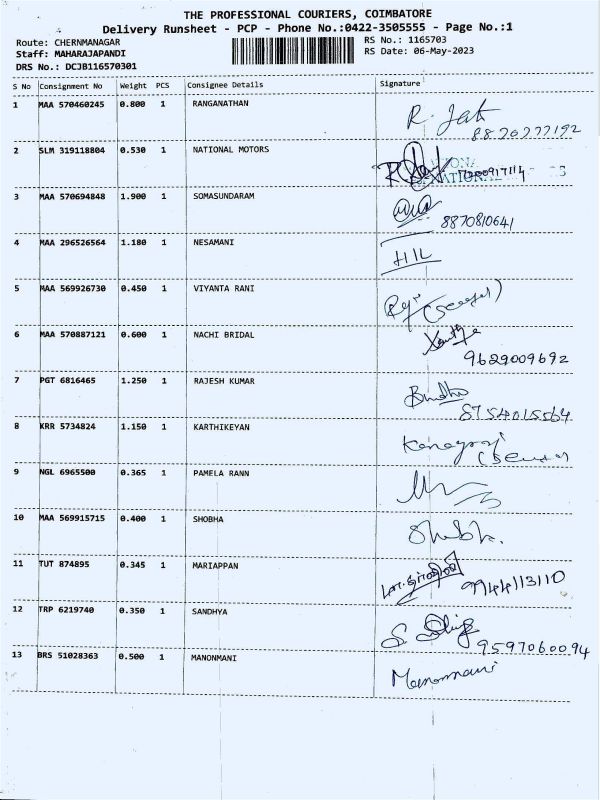 THE PROFESSIONAL COURIERS, COIMBATORE
Delivery Runsheet - PCP - Phone No.:0422-3505555 - Page No.:1
Route: CHERNMANAGAR RS No.: 1165703
Staff: MAHARAJAPANDI RS Date: 06-May-2023
DRS No.: DCJB116570301
S No Consignment No Weight PCS Consignee Details Signature
1 MAA 570460245 0.800 1 RANGANATHAN R.
2 SLM 319118804 0.530 1 NATIONAL MOTORS
3 MAA 570694848 1.900 1 SOMASUNDARAM
8870810641
4 MAA 296526564 1.180 1 NESAMANI
5 MAA 569926730 0.450 1 VIYANTA RANI
6 MAA 570887121 0.600 1 NACHI BRIDAL
9629009692
7 PGT 6816465 1.250 1 RAJESH KUMAR Bindhu
8754015564
8 KRR 5734824 1.150 1 KARTHIKEYAN Kanagaraj
9 NGL 6965500 0.365 1 PAMELA RANN
10 MAA 569915715 0.400 1 SHOBHA Shobh.
11 TUT 874895 0.345 1 MARIAPPAN 9944113110
12 TRP 6219740 0.350 1 SANDHYA S
9597060094
13 BRS 51028363 0.500 1 MANONMANI Manonmani